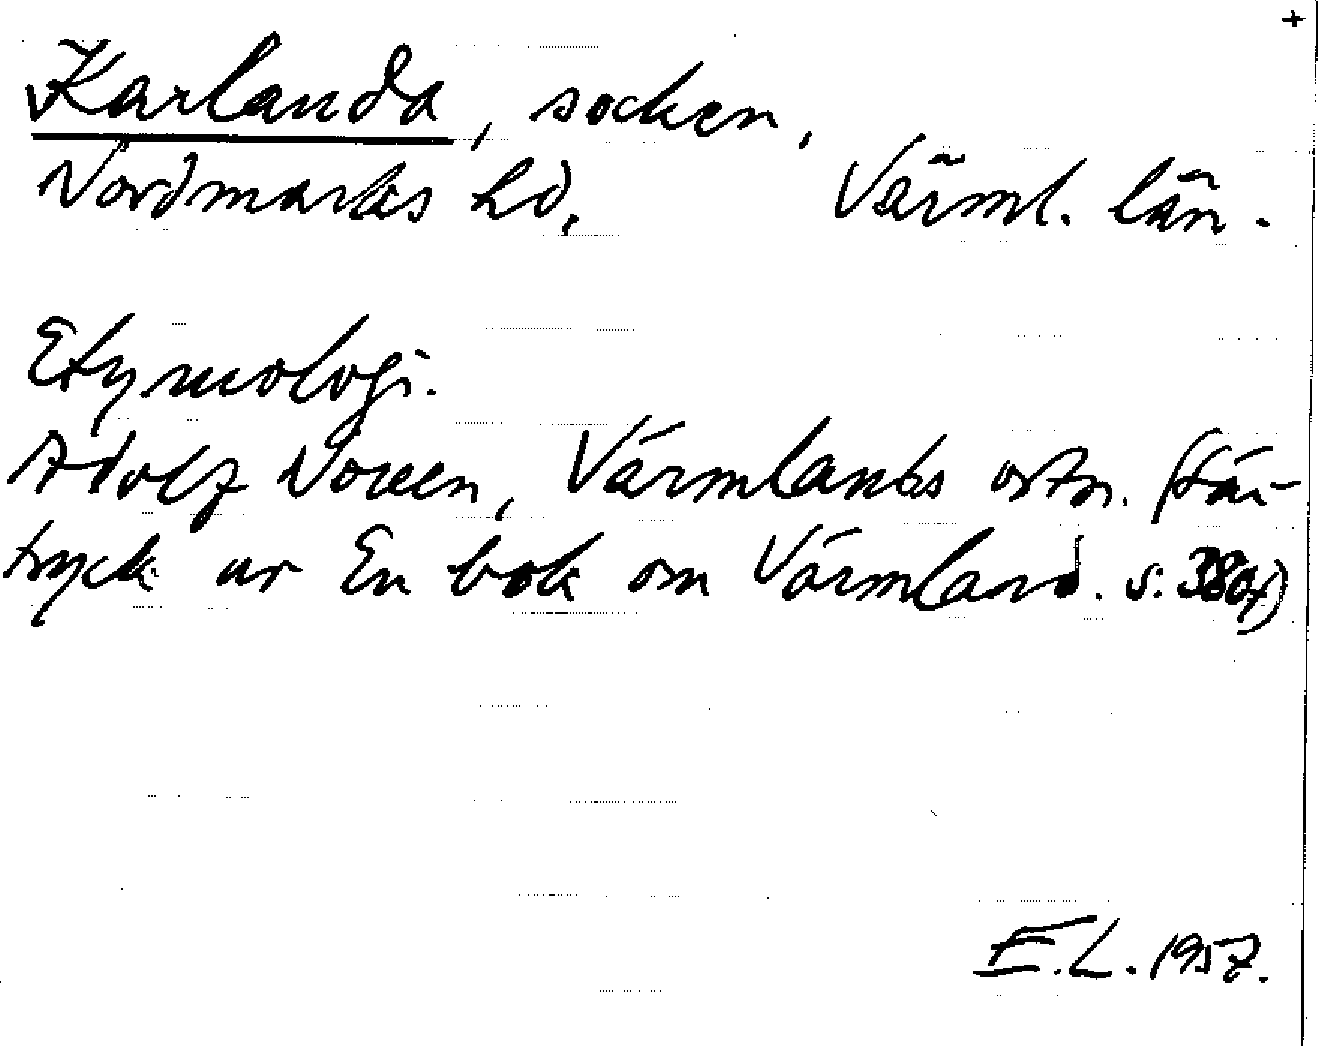 +
Karlanda, socken,
Nordmarks hd, Värml. län.
Etymologi.
Adolf Noreen, Värmlands ortn. (Sär-
tryck ur En bok om Värmland. s. 380f)
E.L. 1957.